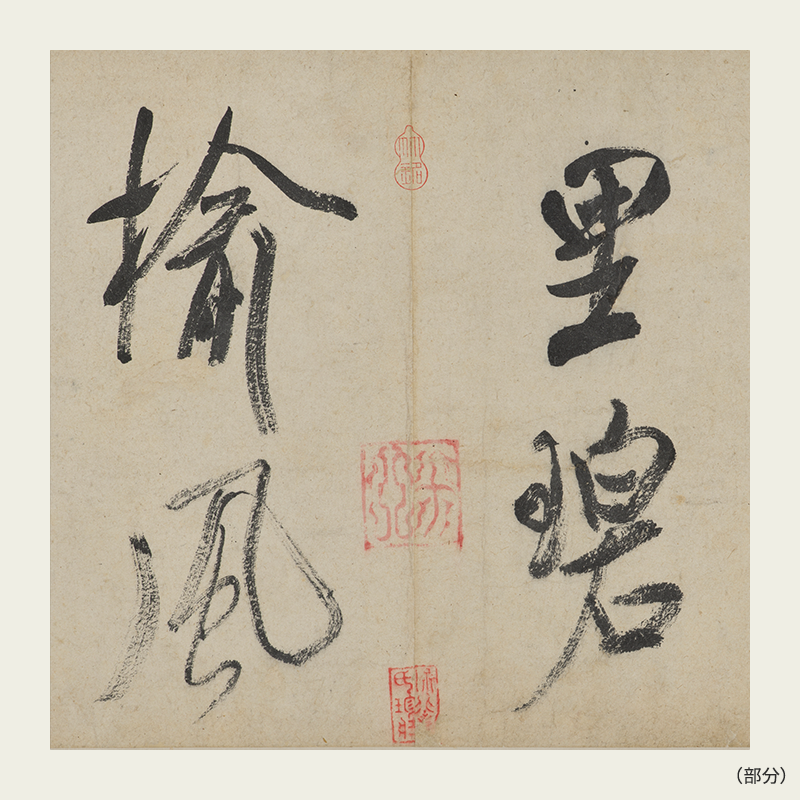 里碧
榆風
（部分）